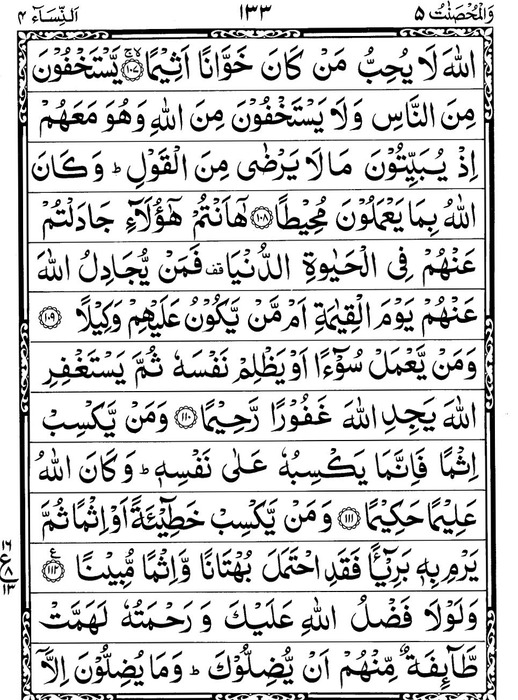 وَالْمُحْصَنٰتُ ۵ ۱۳۳ اَلنِّسَآء ۴
اللّٰهَ لَا يُحِبُّ مَنْ كَانَ خَوَّانًا اَثِيْمًا ﴿۱۰۷﴾ۙۚ يَّسْتَخْفُوْنَ
مِنَ النَّاسِ وَلَا يَسْتَخْفُوْنَ مِنَ اللّٰهِ وَهُوَ مَعَهُمْ
اِذْ يُبَيِّتُوْنَ مَا لَا يَرْضٰى مِنَ الْقَوْلِ ؕ وَكَانَ
اللّٰهُ بِمَا يَعْمَلُوْنَ مُحِيْطًا ﴿۱۰۸﴾ هٰۤاَنْتُمْ هٰۤؤُلَآءِ جَادَلْتُمْ
عَنْهُمْ فِى الْحَيٰوةِ الدُّنْيَا قف فَمَنْ يُّجَادِلُ اللّٰهَ
عَنْهُمْ يَوْمَ الْقِيٰمَةِ اَمْ مَّنْ يَّكُوْنُ عَلَيْهِمْ وَكِيْلًا ﴿۱۰۹﴾
وَمَنْ يَّعْمَلْ سُوْٓءًا اَوْ يَظْلِمْ نَفْسَهٗ ثُمَّ يَسْتَغْفِرِ
اللّٰهَ يَجِدِ اللّٰهَ غَفُوْرًا رَّحِيْمًا ﴿۱۱۰﴾ وَمَنْ يَّكْسِبْ
اِثْمًا فَاِنَّمَا يَكْسِبُهٗ عَلٰى نَفْسِهٖ ؕ وَكَانَ اللّٰهُ
عَلِيْمًا حَكِيْمًا ﴿۱۱۱﴾ وَمَنْ يَّكْسِبْ خَطِيْٓئَةً اَوْ اِثْمًا ثُمَّ
يَرْمِ بِهٖ بَرِيْٓـًٔا فَقَدِ احْتَمَلَ بُهْتَانًا وَّاِثْمًا مُّبِيْنًا ﴿۱۱۲﴾ ع
۱۶ ع ۸ ۱۳
وَلَوْلَا فَضْلُ اللّٰهِ عَلَيْكَ وَرَحْمَتُهٗ لَهَمَّتْ
طَّآئِفَةٌ مِّنْهُمْ اَنْ يُّضِلُّوْكَ ؕ وَمَا يُضِلُّوْنَ اِلَّاۤ